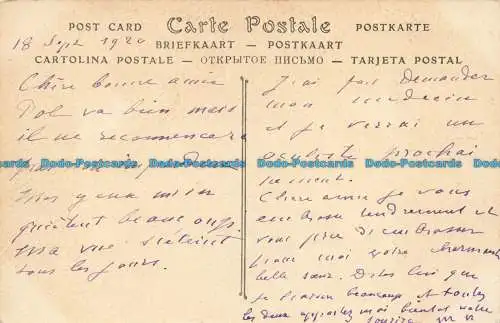 POST CARD Carte Postale POSTKARTE
BRIEFKAART — POSTKAART
CARTOLINA POSTALE — ОТКРЫТОЕ ПИСЬМО — TARJETA POSTAL
18 Sept 1920
Chère bonne amie
va bien mais
il ne recommencera
pas
Mes yeux m'in
quiètent beaucoup.
Ma vue s'éteint
tous les jours.
J'ai fait demander
mon médecin
et je verrai un
oculiste prochai
nement.
Chère amie je vous
embrasse tendrement et
vous prie d'embrasser
pour moi votre charmante
belle sœur. Dites lui que
je pense beaucoup et toutes
les deux apportez moi bientôt votre
sourire
Dodo-Postcards Dodo-Postcards Dodo-Postcards Dodo-Postcards Dodo-Postcards Dodo-Postcards